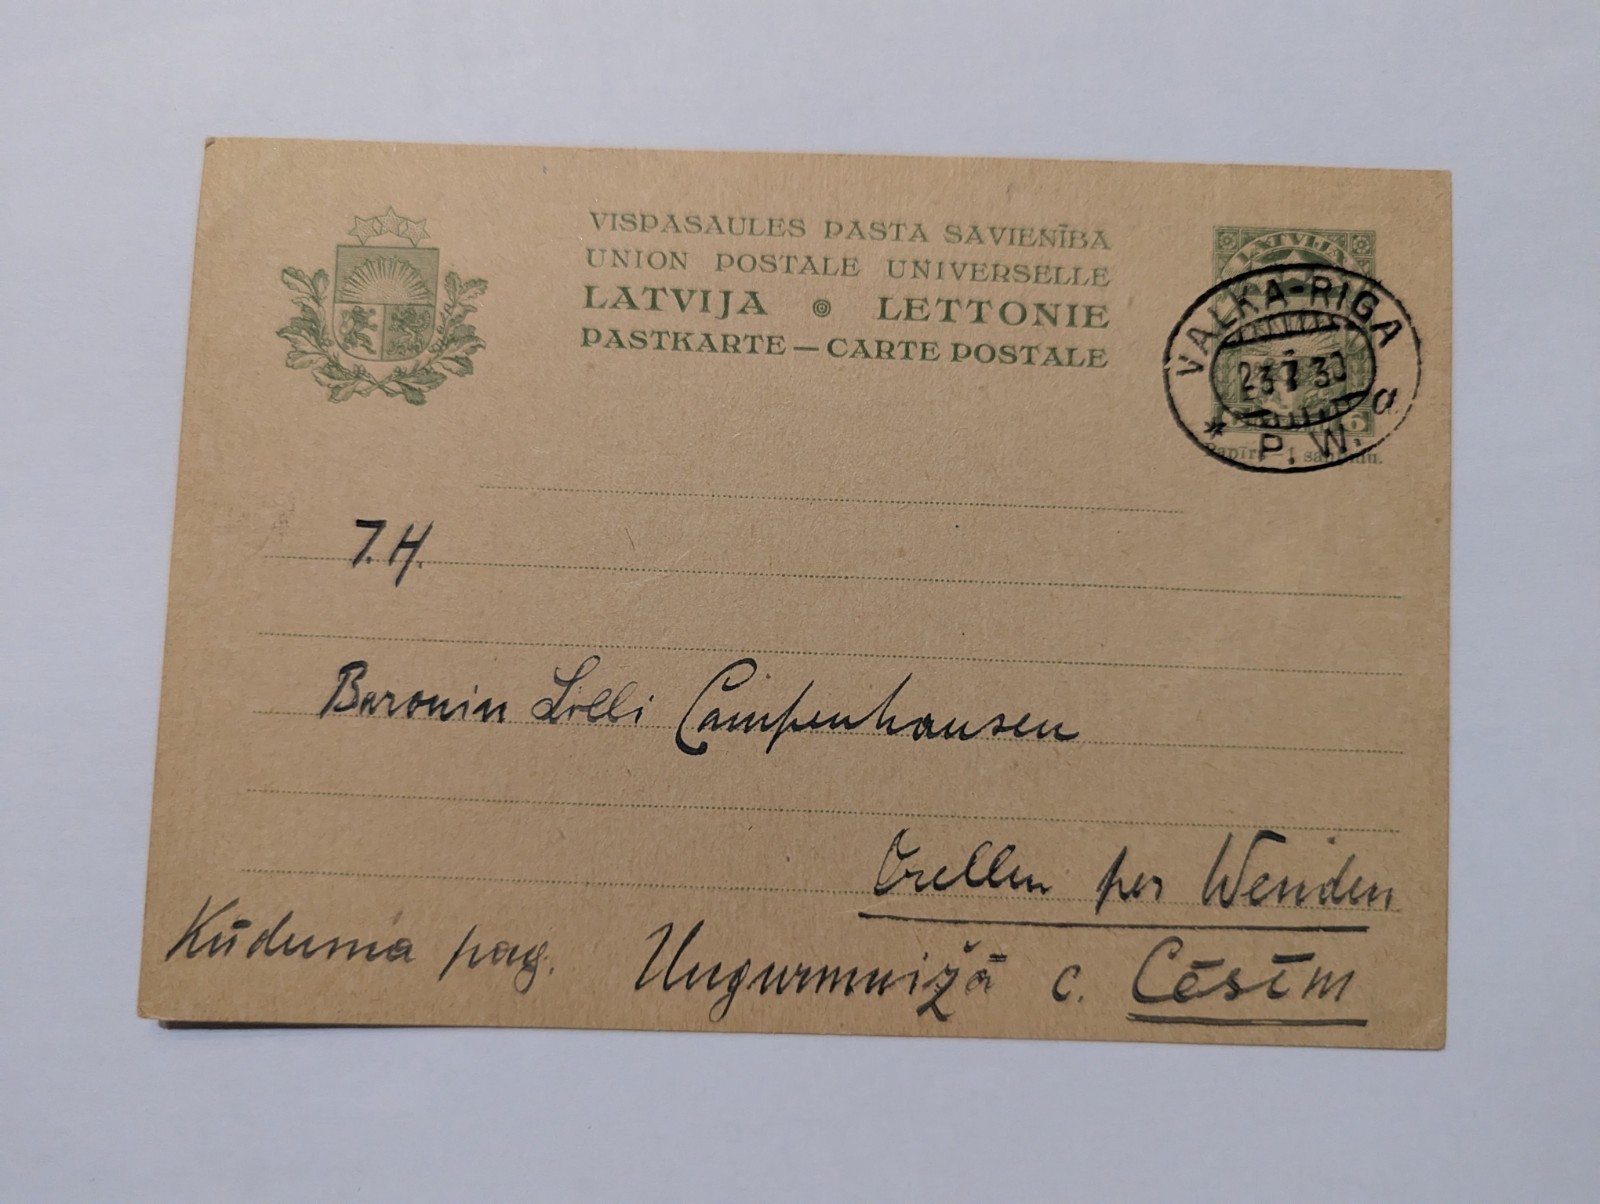 VISPASAULES PASTA SAVIENĪBA
UNION POSTALE UNIVERSELLE
LATVIJA LETTONIE
PASTKARTE — CARTE POSTALE
LATVIJA
VALKA-RIGA
23 7 30
* P. W. a
6
Papīrs – 1 santīmu.
I. H.
Baronin Lilli Campenhausen
Orellen per Wenden
Kūduma pag. Ungurmuižā c. Cēsīm